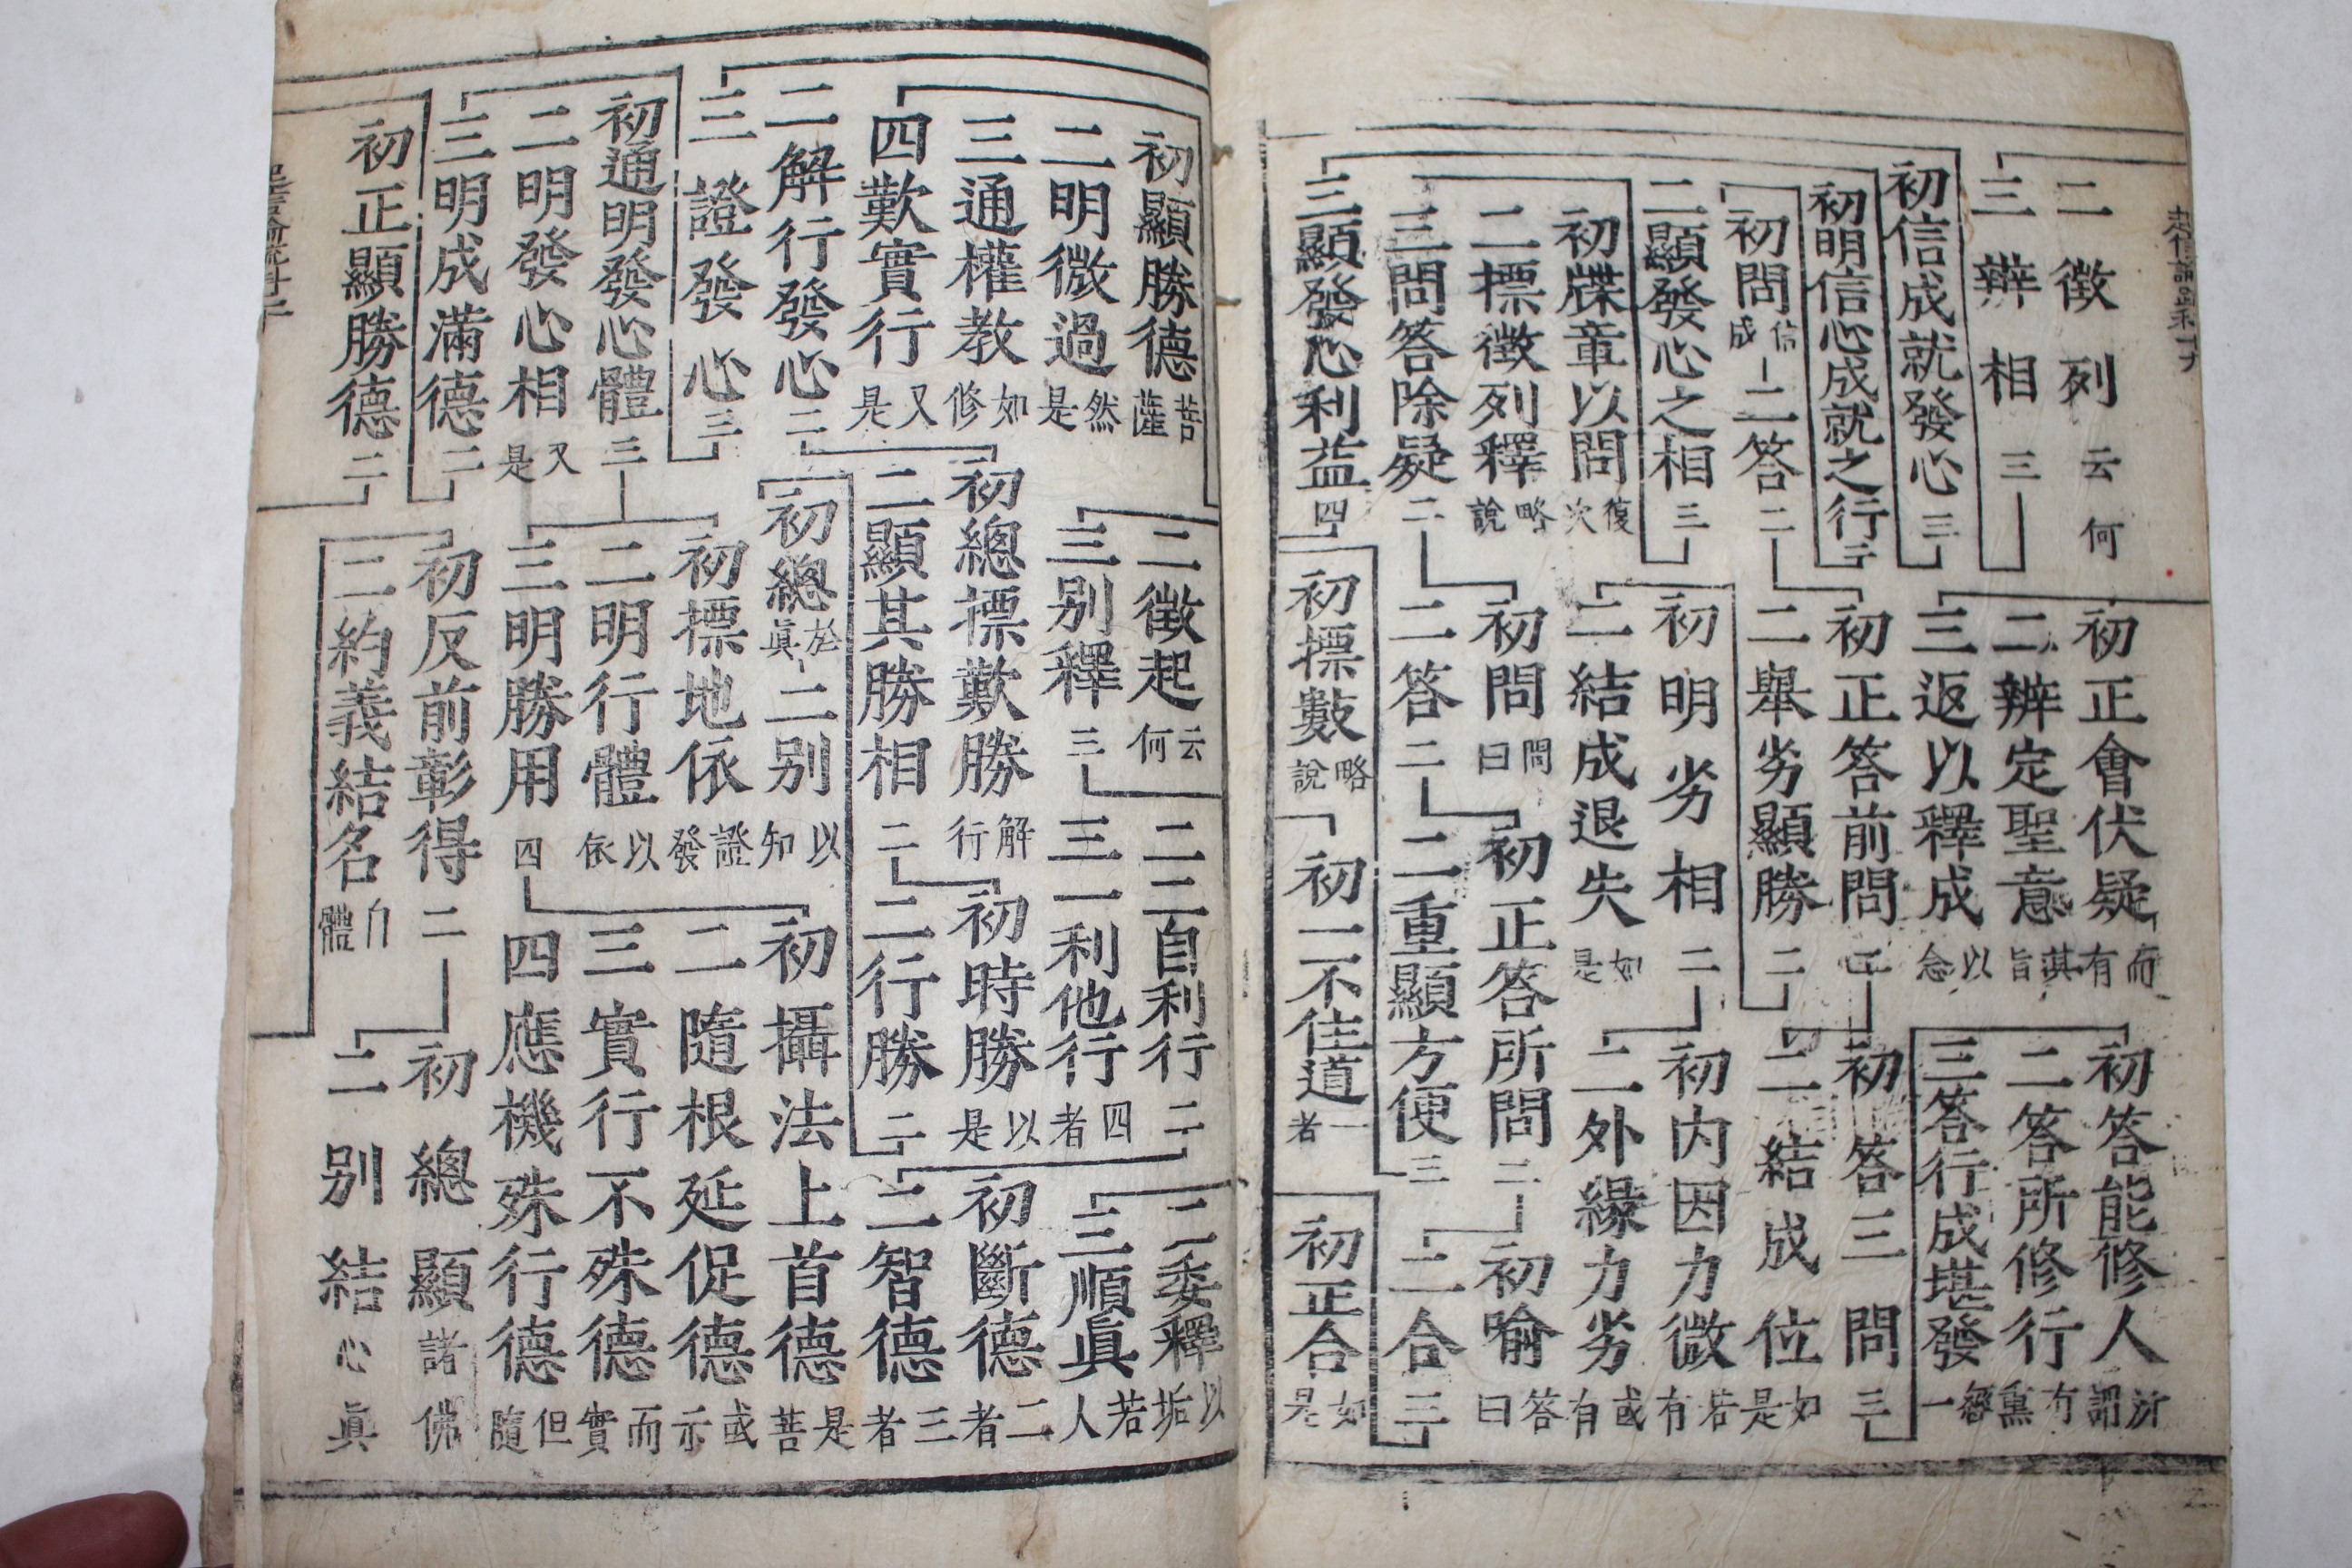 二徵列云何
三辨相三
初信成就發心三
初明信心成就之行二
初問信成 二答二
二顯發心之相三
初牒章以問復次
二標徵列釋略說
三問答除疑二
三顯發心利益四
初正會伏疑而有
二辨定聖意其旨
三返以釋成以念
初正答前問二
二舉劣顯勝二
初明劣相二
二結成退失如是
初問問曰
二答二
初標數略說
初答能修人所謂
二答所修行有熏
三答行成堪發一
初答三問三
二結成位如是
初內因力微若有
二外緣力劣或有
初正答所問二
二重顯方便三
初不住道一者
初喻答曰
二合三
初正合如是
初顯勝德菩薩
二明微過然是
三通權教如修
四歎實行又是
二解行發心二
三證發心三
初通明發心體三
二明發心相又是
三明成滿德二
初正顯勝德二
二徵起云何
三別釋三
初總標歎勝解行
二顯其勝相二
初總於真 二別以知
初標地依證發
二明行體以依
三明勝用四
初反前彰得二
二約義結名自體
二自利行二
三利他行四者
初時勝以是
二行勝二
初攝法上首德是菩
二隨根延促德或示
三實行不殊德而實
四應機殊行德但隨
初總顯諸佛
二別結心真
二委釋以垢
三順真若人
初斷德二者
二智德三者